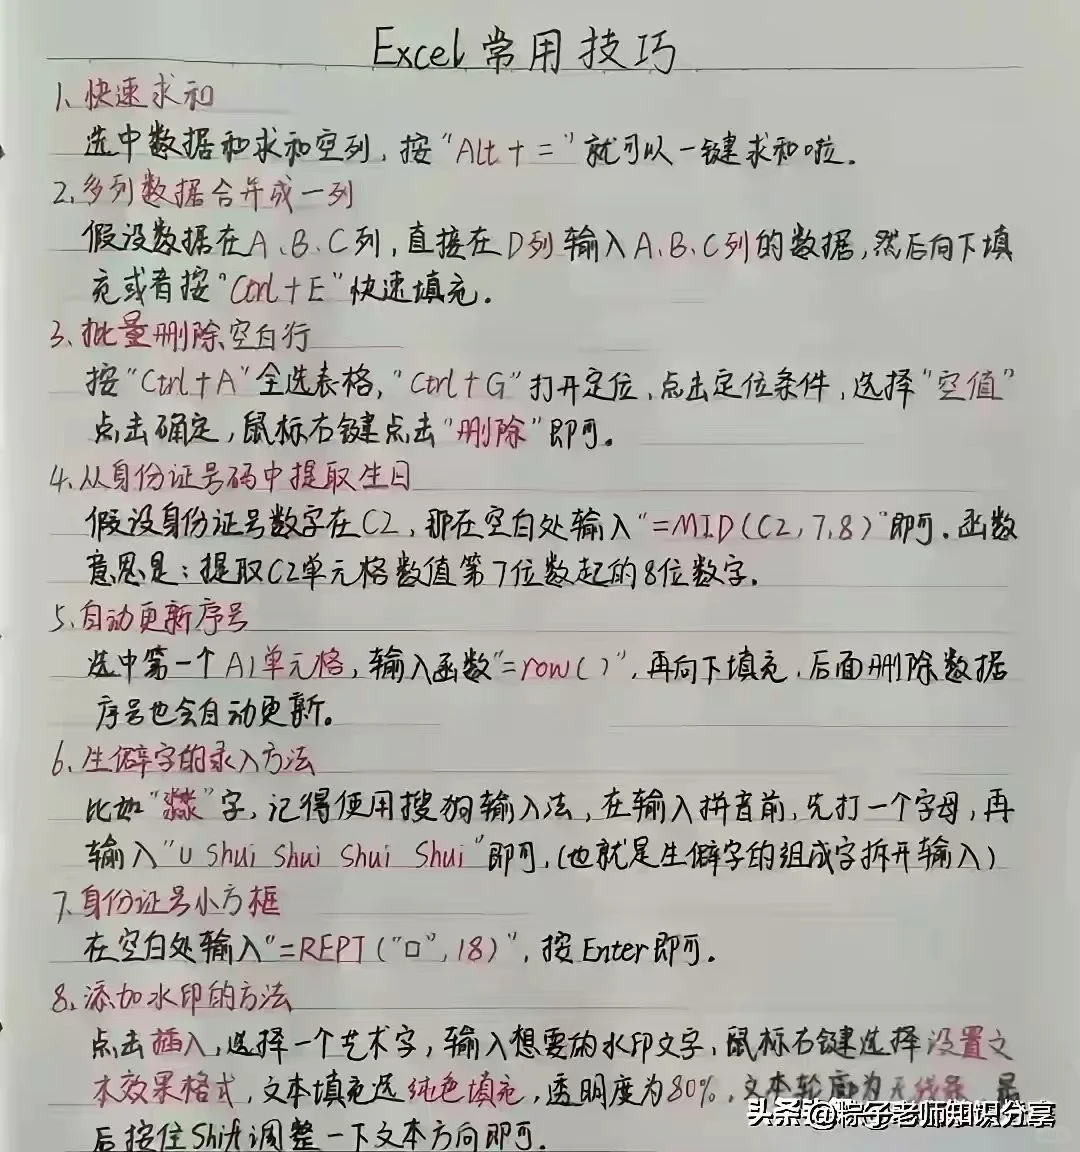 Excel常用技巧
1、快速求和
选中数据和求和空列，按“Alt+=”就可以一键求和啦。
2、多列数据合并成一列
假设数据在A、B、C列，直接在D列输入A、B、C列的数据，然后向下填
充或者按“Ctrl+E”快速填充。
3、批量删除空白行
按“Ctrl+A”全选表格，“Ctrl+G”打开定位、点击定位条件，选择“空值”
点击确定，鼠标右键点击“删除”即可。
4、从身份证号码中提取生日
假设身份证号数字在C2，那在空白处输入“=MID(C2,7,8)”即可。函数
意思是：提取C2单元格数值第7位数起的8位数字。
5、自动更新序号
选中第一个A1单元格，输入函数“=row()”，再向下填充，后面删除数据
序号也会自动更新。
6、生僻字的录入方法
比如“㵘”字，记得使用搜狗输入法，在输入拼音前，先打一个字母，再
输入“U Shui Shui Shui Shui”即可，(也就是生僻字的组成字拆开输入)
7、身份证号小方框
在空白处输入“=REPT(“□”,18)”，按Enter即可。
8、添加水印的方法
点击插入，选择一个艺术字，输入想要的水印文字，鼠标右键选择设置文
本效果格式，文本填充选纯色填充，透明度为80%，文本轮廓为无线条，最
后按住Shift调整一下文本方向即可。
头条@粽子老师知识分享